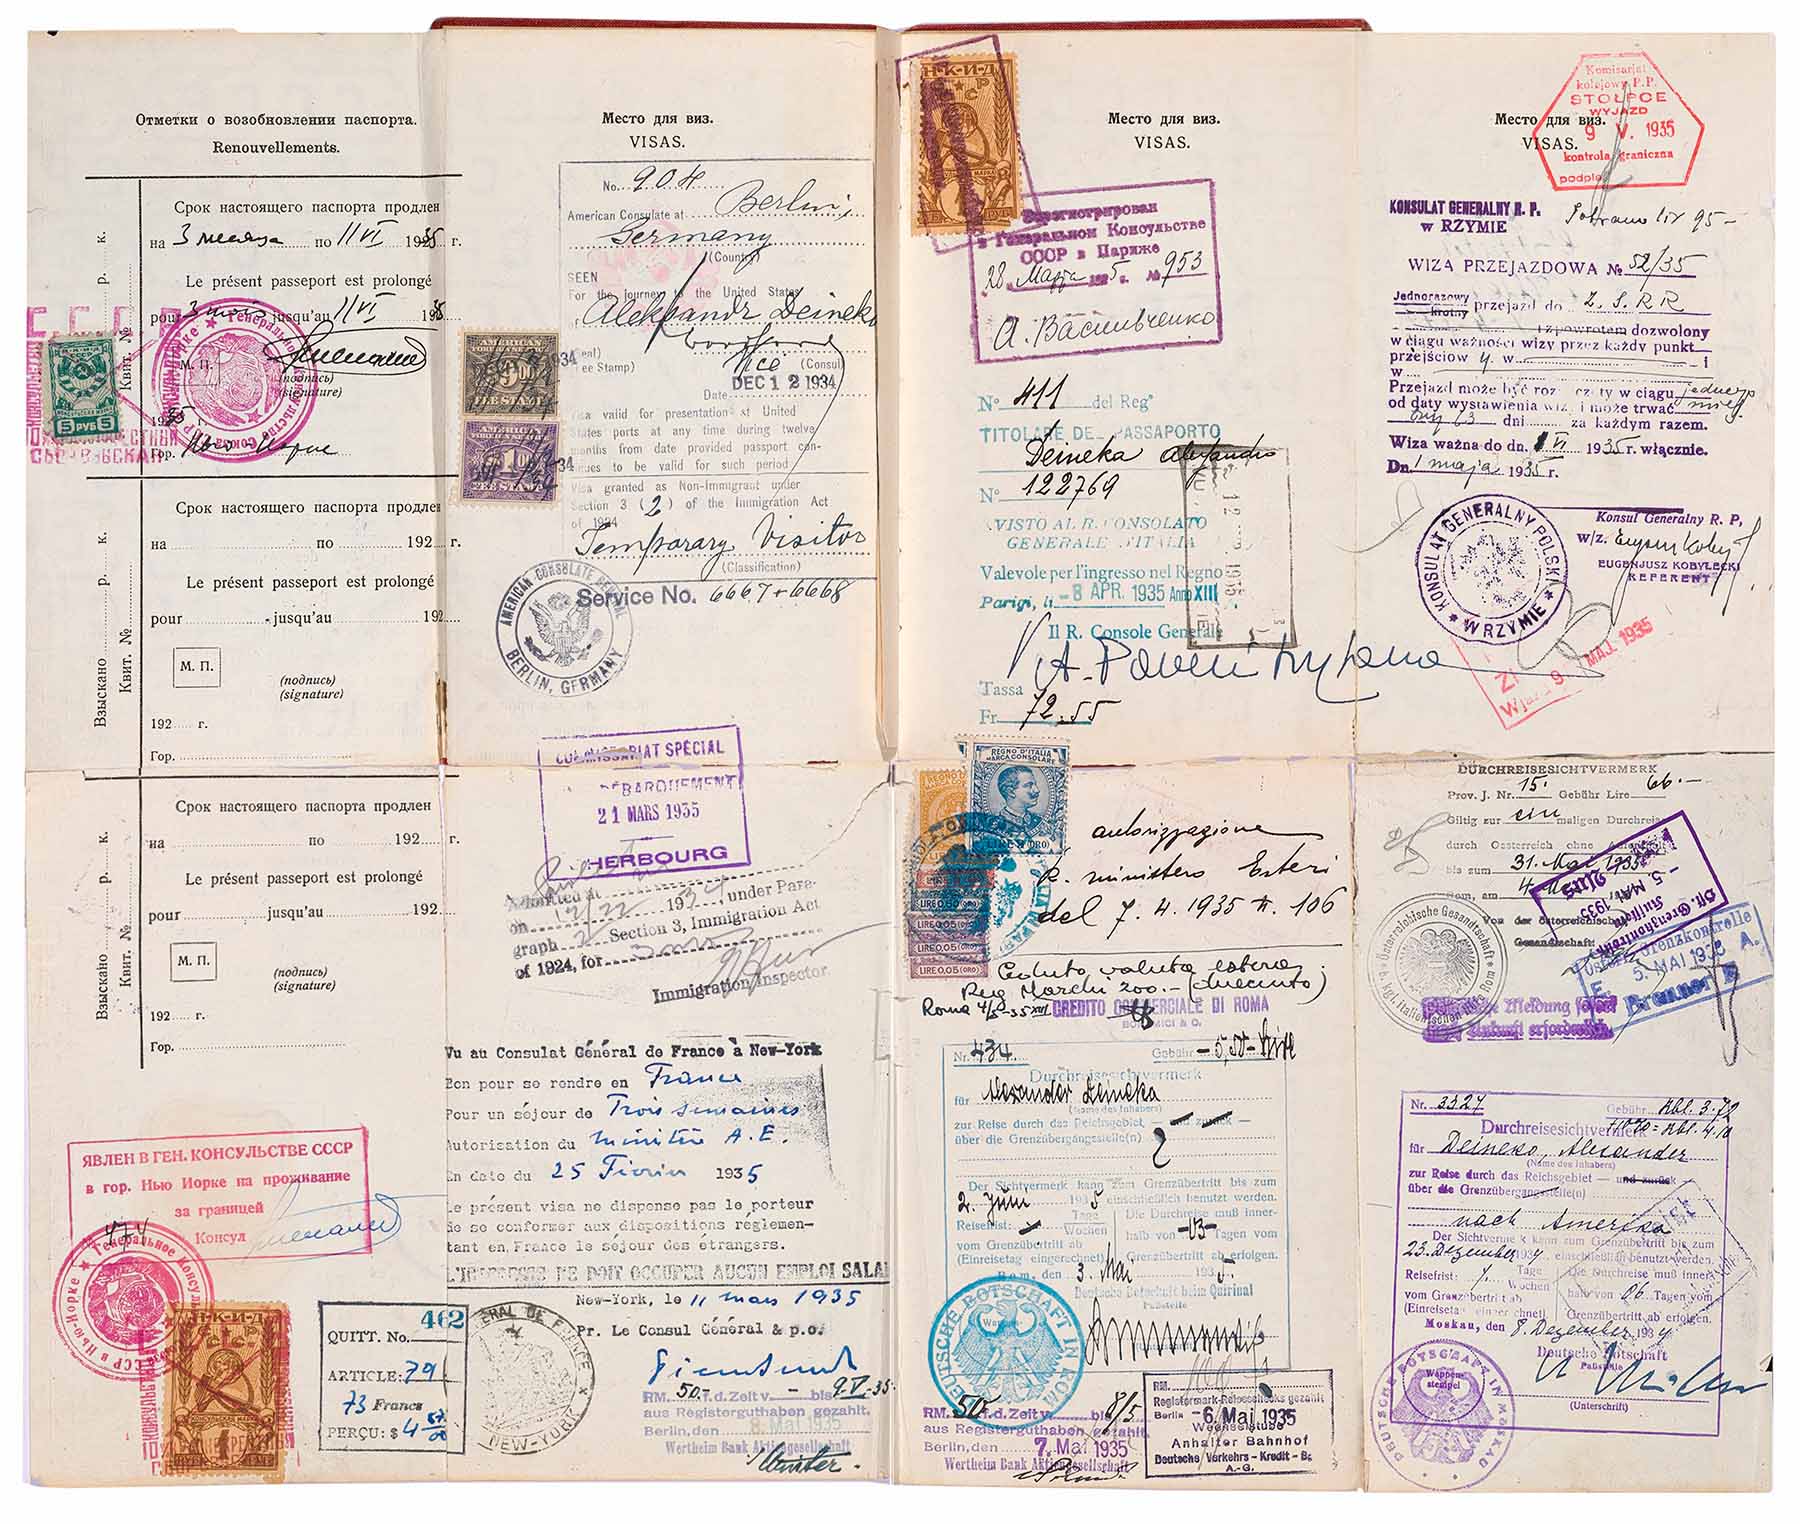 Отметки о возобновлении паспорта.
Renouvellements.
Срок настоящего паспорта продлен
на 3 месяца по 11 VI 1935 г.
Le présent passeport est prolongé
pour 3 mois jusqu'au 11 VI 1935
М. П.
(подпись)
(signature)
Гор. Нью Йорк
5 РУБ 5
Взыскано р. к.
Квит. №
Срок настоящего паспорта продлен
на по 192 г.
Le présent passeport est prolongé
pour jusqu'au 192
М. П.
(подпись)
(signature)
192 г.
Гор.
Взыскано р. к.
Квит. №
Срок настоящего паспорта продлен
на по 192 г.
Le présent passeport est prolongé
pour jusqu'au 192
М. П.
(подпись)
(signature)
192 г.
Гор.
Взыскано р. к.
Квит. №
ЯВЛЕН В ГЕН. КОНСУЛЬСТВЕ СССР
в гор. Нью Иорке на проживание
за границей
Консул
474
Н·К·И·Д
QUITT. No. 462
ARTICLE: 79
73 Francs
PERÇU: $ 4
Место для виз.
VISAS.
No. 904
American Consulate at Berlin,
Germany
(Country)
SEEN
For the journey to the United States
Aleksandr Deineko
Vice (Consul)
Date DEC 12 1934
Visa valid for presentation at United
States ports at any time during twelve
months from date provided passport con-
tinues to be valid for such period
Visa granted as Non-Immigrant under
Section 3 (2) of the Immigration Act
of 1924
Temporary Visitor
(Classification)
Service No. 6667+6668
AMERICAN CONSULATE GENERAL
BERLIN, GERMANY
AMERICAN
FOREIGN SERVICE
FEE STAMP
COMMISSARIAT SPÉCIAL
DÉBARQUEMENT
21 MARS 1935
CHERBOURG
Admitted at
on 12/22 1934, under Para-
graph 2 Section 3, Immigration Act
of 1924, for 3 mos
Immigration Inspector.
Vu au Consulat Général de France à New-York
Bon pour se rendre en France
Pour un séjour de Trois semaines
Autorisation du Ministère A.E.
En date du 25 Février 1935
Le présent visa ne dispense pas le porteur
de se conformer aux dispositions réglemen-
tant en France le séjour des étrangers.
L'INTERESSE NE DOIT OCCUPER AUCUN EMPLOI SALA
New-York, le 11 mars 1935
Pr. Le Consul Général & p.o.
RM. 50.- f.d. Zeit v. - bis 9.V.35
aus Registerguthaben gezahlt.
Berlin, den 8. Mai 1935
Wertheim Bank Aktiengesellschaft
Место для виз.
VISAS.
Н·К·И·Д
Зарегистрирован
в Генеральном Консульстве
СССР в Париже
28 Марта 1935 г. № 953
А. Васильченко
N° 411 del Reg°
TITOLARE DEL PASSAPORTO
Deineka Alessandro
N° 122769
VISTO AL R. CONSOLATO
GENERALE D'ITALIA
Valevole per l'ingresso nel Regno
Parigi, li - 8 APR. 1935 Anno XIII
Il R. Console Generale
Tassa
Fr 72.55
REGNO D'ITALIA
MARCA CONSOLARE
autorizzazione
R. ministero Esteri
del 7. 4. 1935 n. 106
LIRE 0,05 (ORO)
Ceduto valuta estera
Reg Marchi 200.- (duecento)
Roma 4/5-35 XIII CREDITO COMMERCIALE DI ROMA
Nr. 434 Gebühr - 5,50 Lire
Durchreisesichtvermerk
für Alexander Deineka
(Name des Inhabers)
zur Reise durch das Reichsgebiet - und zurück -
über die Grenzübergangstelle(n)
Der Sichtvermerk kann zum Grenzübertritt bis zum
2. Juni 1935 einschließlich benutzt werden.
Reisefrist: Tage Wochen
Die Durchreise muß inner-
halb von -03- Tagen vom
vom Grenzübertritt ab
(Einreisetag eingerechnet) Grenzübertritt ab erfolgen.
Rom, den 3. Mai 1935.
Deutsche Botschaft beim Quirinal
Paßstelle
DEUTSCHE BOTSCHAFT IN ROM
RM. 50.- f.d. Zeit v. bis 8/5
aus Registerguthaben gezahlt.
Berlin, den 7. Mai 1935
Wertheim Bank Aktiengesellschaft
RM.
Registermark-Reiseschecks gezahlt
Berlin - 6. Mai 1935
Wechselstube
Anhalter Bahnhof
Deutsche Verkehrs-Kredit-Bk
A.-G.
Место для виз.
VISAS.
Komisarjat
kolejowy P.P.
STOŁPCE
WYJAZD
9 V. 1935
kontrola graniczna
podpis
KONSULAT GENERALNY R. P.
w RZYMIE
Pobrano lir 95-
WIZA PRZEJAZDOWA № 52/35
Jednorazowy przejazd do Z.S.R.R
i z powrotem dozwolony
w ciągu ważności wizy przez każdy punkt
przejściowy
w
Przejazd może być rozpoczęty w ciągu jednego
od daty wystawienia wizy i może trwać
dni za każdym razem.
Wiza ważna do dn. 1 VI 1935 r. włącznie.
Dn. 1 maja 1935 r.
KONSULAT GENERALNY POLSKI
W RZYMIE
Konsul Generalny R. P.
w/z.
EUGENJUSZ KOBYŁECKI
REFERENT
9. MAJ. 1935
DURCHREISESICHTVERMERK
Prov. J. Nr. 15. Gebühr Lire 66.-
Giltig zur ein maligen Durchreise
durch Oesterreich ohne Aufenthalt
bis zum 31. Mai 1935
Rom, am 4. Mai
Von der österreichischen
Gesandtschaft:
- 5. MAI 1935
Österr. Grenzkontrolle
5. MAI 1935
Brenner
Meldung sofort
Ankunft erforderlich.
Nr. 3327 Gebühr Rbl. 3.72
Durchreisesichtvermerk
für Deineko, Alexander
(Name des Inhabers)
zur Reise durch das Reichsgebiet - und zurück
über die Grenzübergangstelle(n)
nach Amerika
Der Sichtvermerk kann zum Grenzübertritt bis zum
23. Dezember 1934 einschließlich benutzt werden.
Reisefrist: Tage Wochen
Die Durchreise muß inner-
halb von 06 Tagen vom
vom Grenzübertritt ab
(Einreisetag eingerechnet) Grenzübertritt ab erfolgen.
Moskau, den 8. Dezember 1934
Deutsche Botschaft
Paßstelle
(Unterschrift)
DEUTSCHE BOTSCHAFT IN MOSKAU